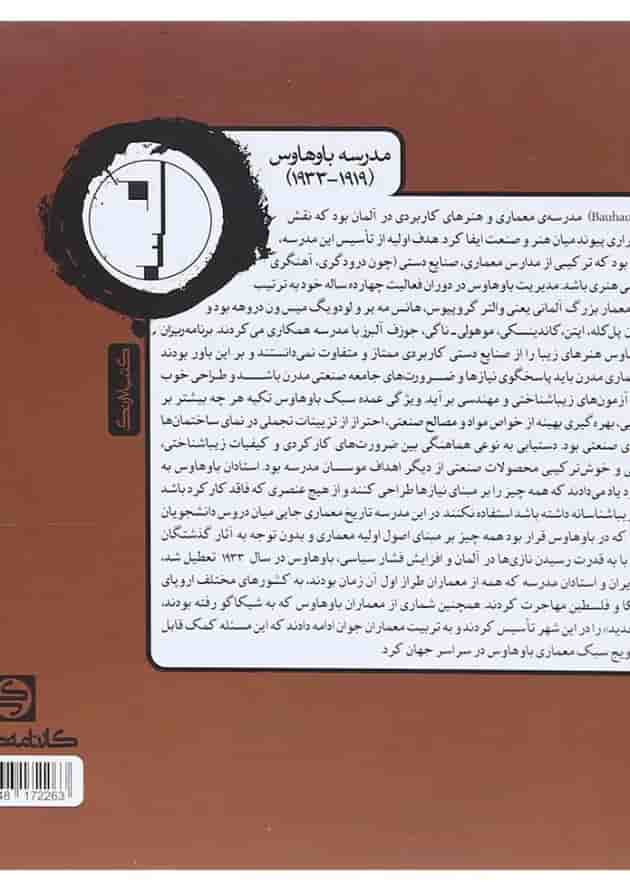 مدرسه باوهاوس
(۱۹۱۹-۱۹۳۳)
(Bauhau مدرسه‌ی معماری و هنرهای کاربردی در آلمان بود که نقش
راری پیوند میان هنر و صنعت ایفا کرد هدف اولیه از تأسیس این مدرسه،
بود که ترکیبی از مدارس معماری، صنایع دستی (چون درودگری، آهنگری
ی هنری باشد. مدیریت باوهاوس در دوران فعالیت چهارده ساله خود به ترتیب
معمار بزرگ آلمانی یعنی والتر گروپیوس، هانس مه یر و لودویگ میس ون دروهه بود و
ن پل کله، ایتن، کاندینسکی، موهولی-ناگی، جوزف آلبرز با مدرسه همکاری می‌کردند. برنامه‌ریزان
اوس هنرهای زیبا را از صنایع دستی کاربردی ممتاز و متفاوت نمی‌دانستند و بر این باور بودند
ماری مدرن باید پاسخگوی نیازها و ضرورت‌های جامعه صنعتی مدرن باشد و طراحی خوب
آزمون‌های زیباشناختی و مهندسی بر آید. ویژگی عمده سبک باوهاوس تکیه هر چه بیشتر بر
یی، بهره‌گیری بهینه از خواص مواد و مصالح صنعتی، احتراز از تزیینات تجملی در نمای ساختمان‌ها
ای صنعتی بود. دستیابی به نوعی هماهنگی بین ضرورت‌های کارکردی و کیفیات زیباشناختی،
ی و خوش‌ترکیبی محصولات صنعتی از دیگر اهداف موسسان مدرسه بود. استادان باوهاوس به
د یاد می‌دادند که همه چیز را بر مبنای نیازها طراحی کنند و از هیچ عنصری که فاقد کارکرد باشد
زیباشناسانه داشته باشد استفاده نکنند. در این مدرسه تاریخ معماری جایی میان دروس دانشجویان
که در باوهاوس قرار بود همه چیز بر مبنای اصول اولیه معماری و بدون توجه به آثار گذشتگان
با به قدرت رسیدن نازی‌ها در آلمان و افزایش فشار سیاسی، باوهاوس در سال ۱۹۳۳ تعطیل شد،
یران و استادان مدرسه که همه از معماران طراز اول آن زمان بودند، به کشورهای مختلف اروپای
کا و فلسطین مهاجرت کردند. همچنین شماری از معماران باوهاوس که به شیکاگو رفته بودند،
جدید» را در این شهر تأسیس کردند و به تربیت معماران جوان ادامه دادند که این مسئله کمک قابل
ویج سبک معماری باوهاوس در سراسر جهان کرد.
48 172263